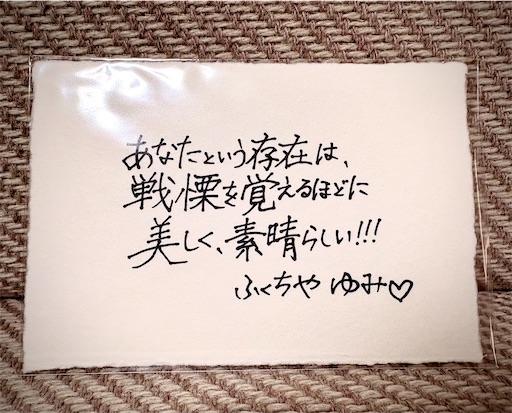 あなたという存在は、
戦慄を覚えるほどに
美しく、素晴らしい!!!
ふくちや ゆみ♡